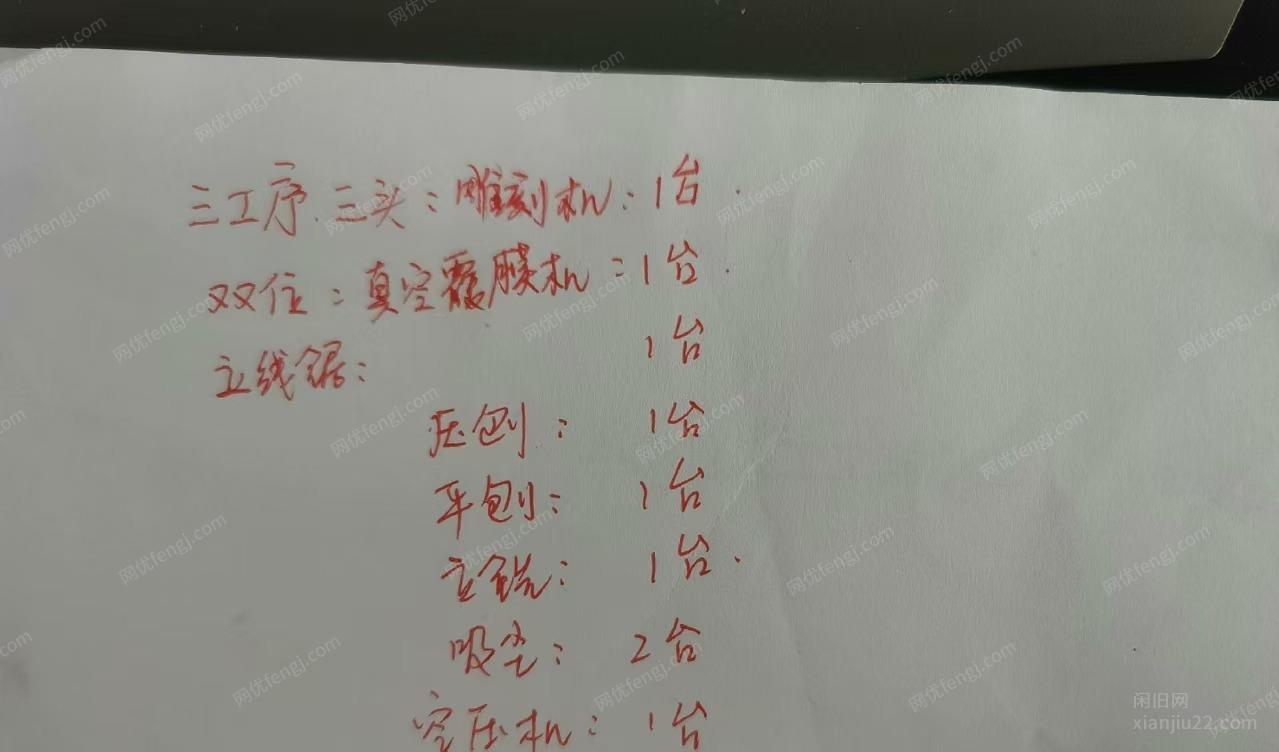 三工序.三头:雕刻机:1台.
双位:真空覆膜机:1台.
立线锯: 1台
压刨: 1台
平刨: 1台
立铣: 1台.
吸尘: 2台
空压机: 1台
闲旧网
xianjiu22.com
网优fengj.com